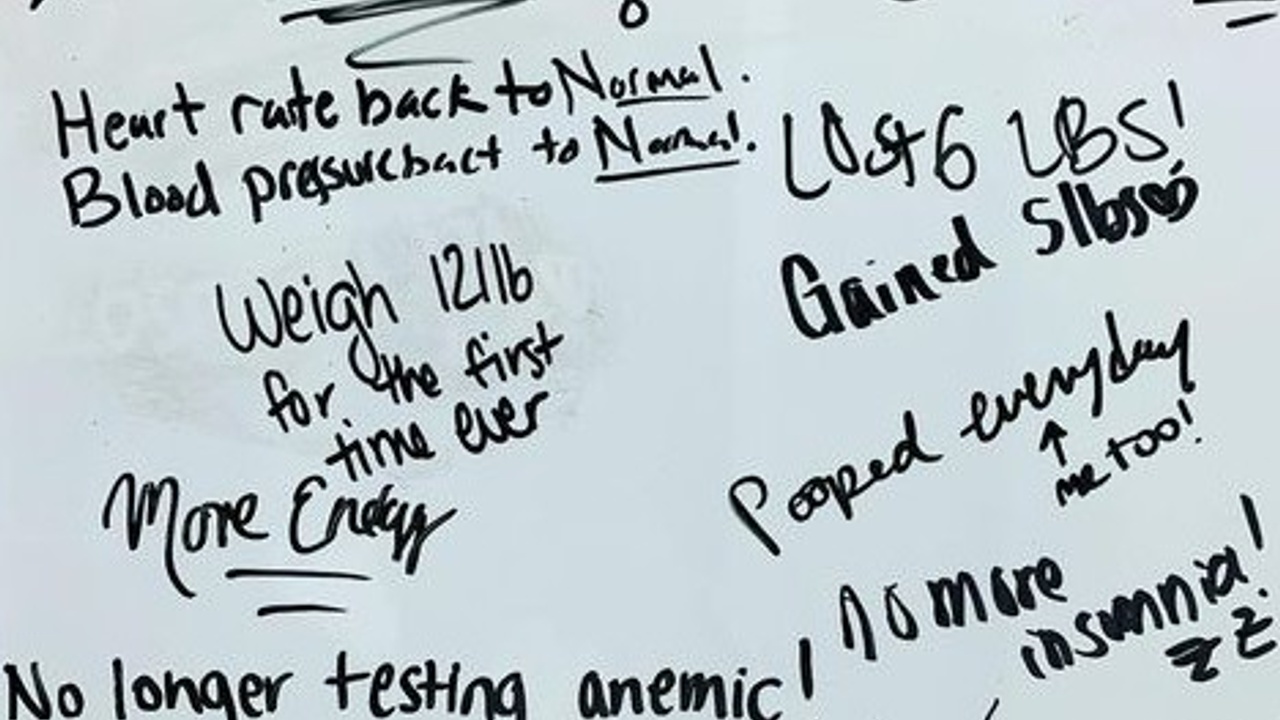 Heart rate back to Normal.
Blood pressure bact to Normal.
Lost 6 LBS!
Gained 5lbs
Weigh 121lb
for the first
time ever
More Energy
Pooped everyday
↑
me too!
No more
insomnia!
zz
No longer testing anemic!